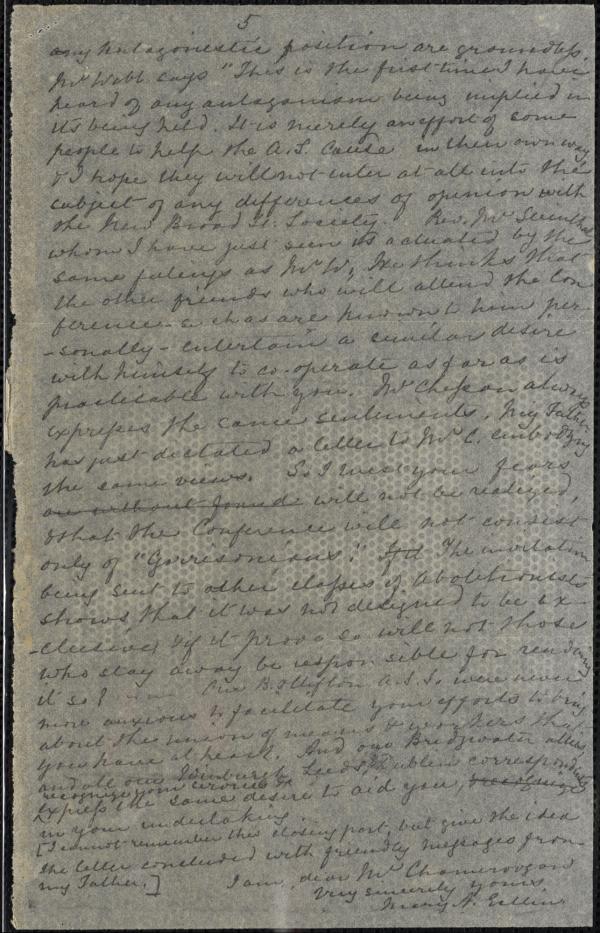 5
any antagonistic position are groundless.
Mr Webb says "This is the first time I have
heard of any antagonism being implied in
its being held. It is merely an effort of some
people to help the A.S. Cause in their own way
& I hope they will not enter at all into the
subject of any differences of opinion with
the New Broad St. Society. Rev. Mr
whom I have just seen is actuated by the
same feelings as Mr W, He thinks that
the other friends who will attend the Con
ference - such as are known to him per
-sonally - entertain a similar desire
with himself to co-operate as far as is
practicable with you. Mr Chesson always
expresses the same sentiments. My Father
has just dictated a letter to Mr C. embodying
the same views. So I trust your fears
are without found will not be realized,
& that the Conference will not consist
only of "Garrisonians." The invitation
being sent to other classes of Abolitionists
shows that it was not designed to be ex-
-clusive; & if it prove so will not those
who stay away be responsible for rendering
it so? Our B. & Clifton A.S.S. were never
more anxious to facilitate your efforts to bring
about the union of means & workers that
you have at heart. And our Bridgwater allies,
and all our Edinburgh Leeds, & Dublin correspondents
recognize your
express the same desire to aid you,
in your undertaking.
[I cannot remember the closing part, but give the idea
the letter concluded with friendly messages from
my Father.]
I am, dear Mr Chamerovzow
Very sincerely yours
Mary A. Estlin